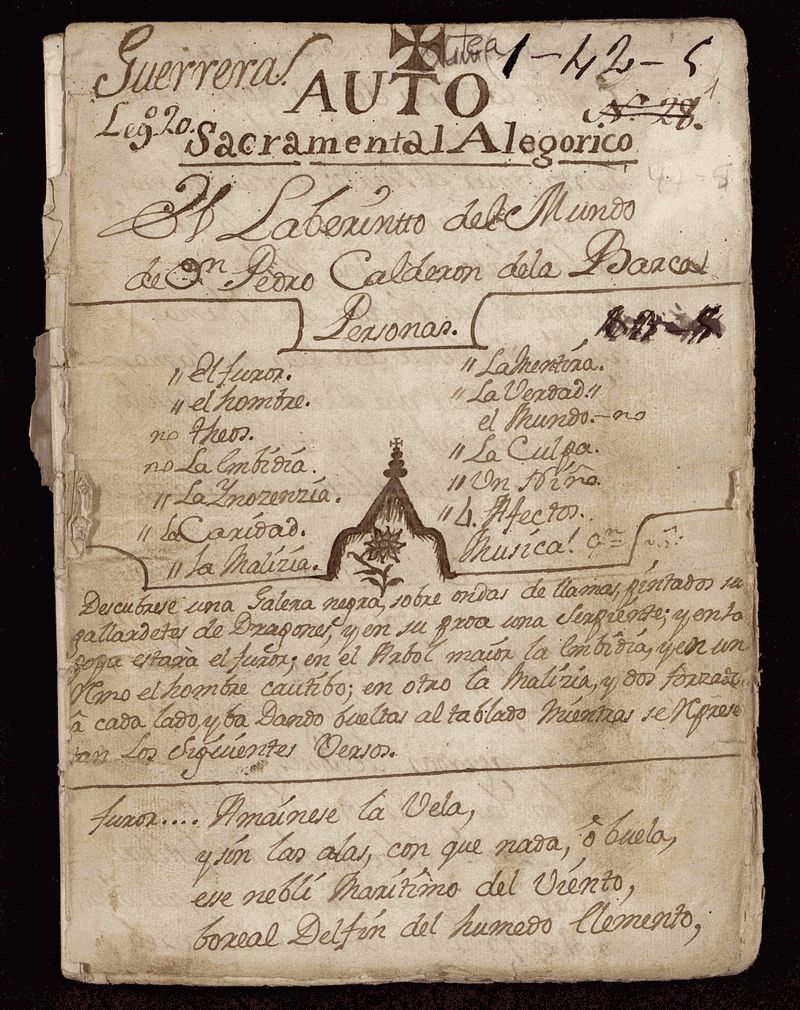 Guerrera.
1-42-5
AUTO
Leg.º 20.
Nº 28.
Sacramental Alegorico
El Laberintto del Mundo
de Dn Pedro Calderon dela Barca
Personas.
" El furor.
" el hombre.
no theos.
no La Embidia.
" La Ynozenzia.
" La Caridad.
" La Malizia.
" La Mentira.
" La Verdad. "
el Mundo. - no
" La Culpa.
" Un Niño.
" 4. Afectos.
Musica.
Descubrese una Galera negra, sobre ondas de llamas, pintados su
gallardetes de Dragones, y en su proa una Serpiente; y en la
popa estarà el furor; en el Arbol maior la Embidia, y en un
Remo el hombre cautibo; en otro la Malizia, y dos forzados
â cada lado, y ba Dando bueltas al tablado Mientras se Represe
tan Los Siguientes Versos.
furor.... Amainese la Vela,
y sin las alas, con que nada, ô buela,
ese neblì Marìtimo del Viento,
boreal Delfin del humedo Elemento,